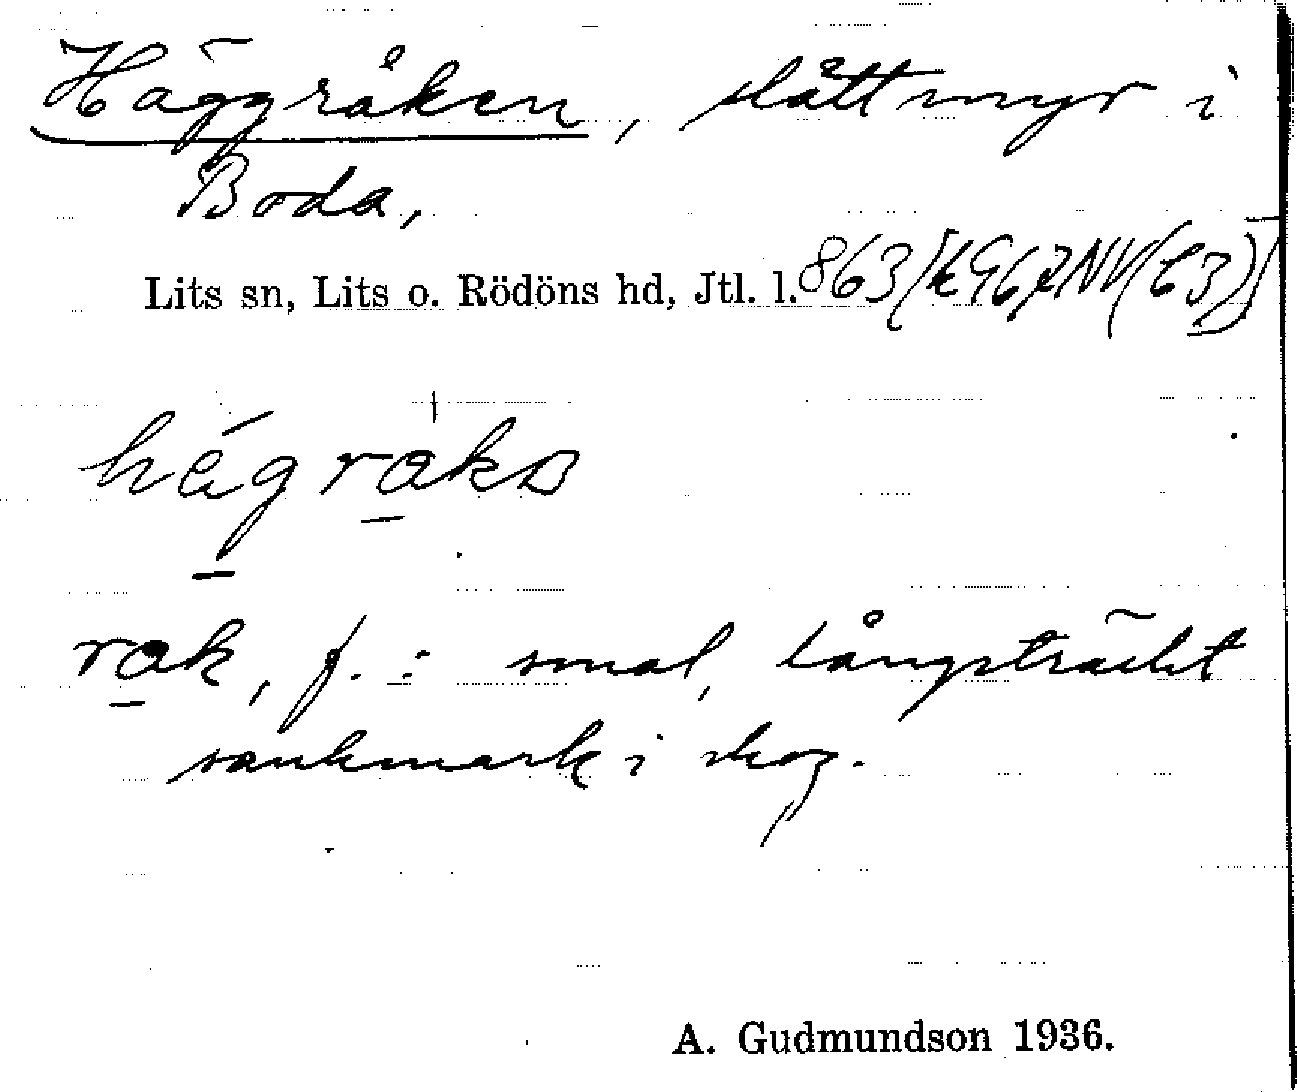 Häggråken, slåttmyr i
Boda,
Lits sn, Lits o. Rödöns hd, Jtl. l. 863
rak, f. : smal, långsträckt
sankmark i skog.
A. Gudmundson 1936.